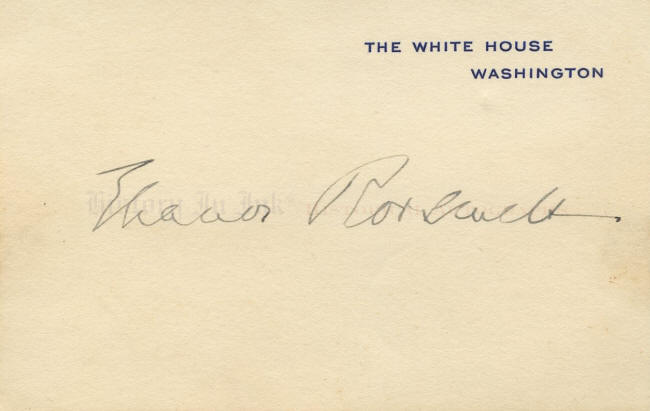 THE WHITE HOUSE
WASHINGTON
Eleanor Roosevelt
History In Ink